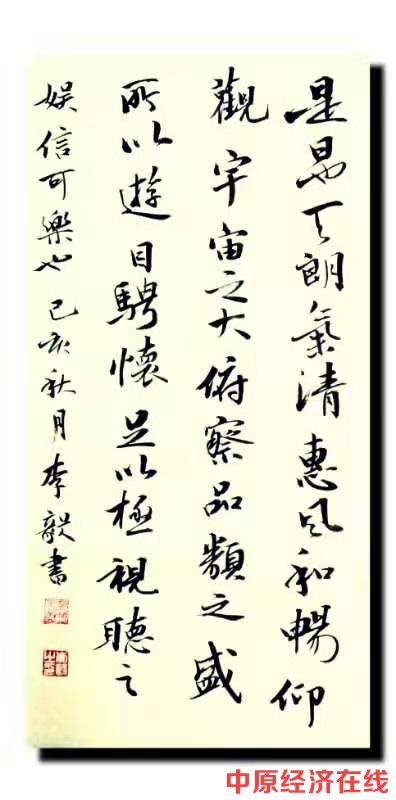 是日也天朗氣清惠風和暢仰
觀宇宙之大俯察品類之盛
所以遊目騁懷足以極視聽之
娛信可樂也己亥秋月李毅書
中原经济在线